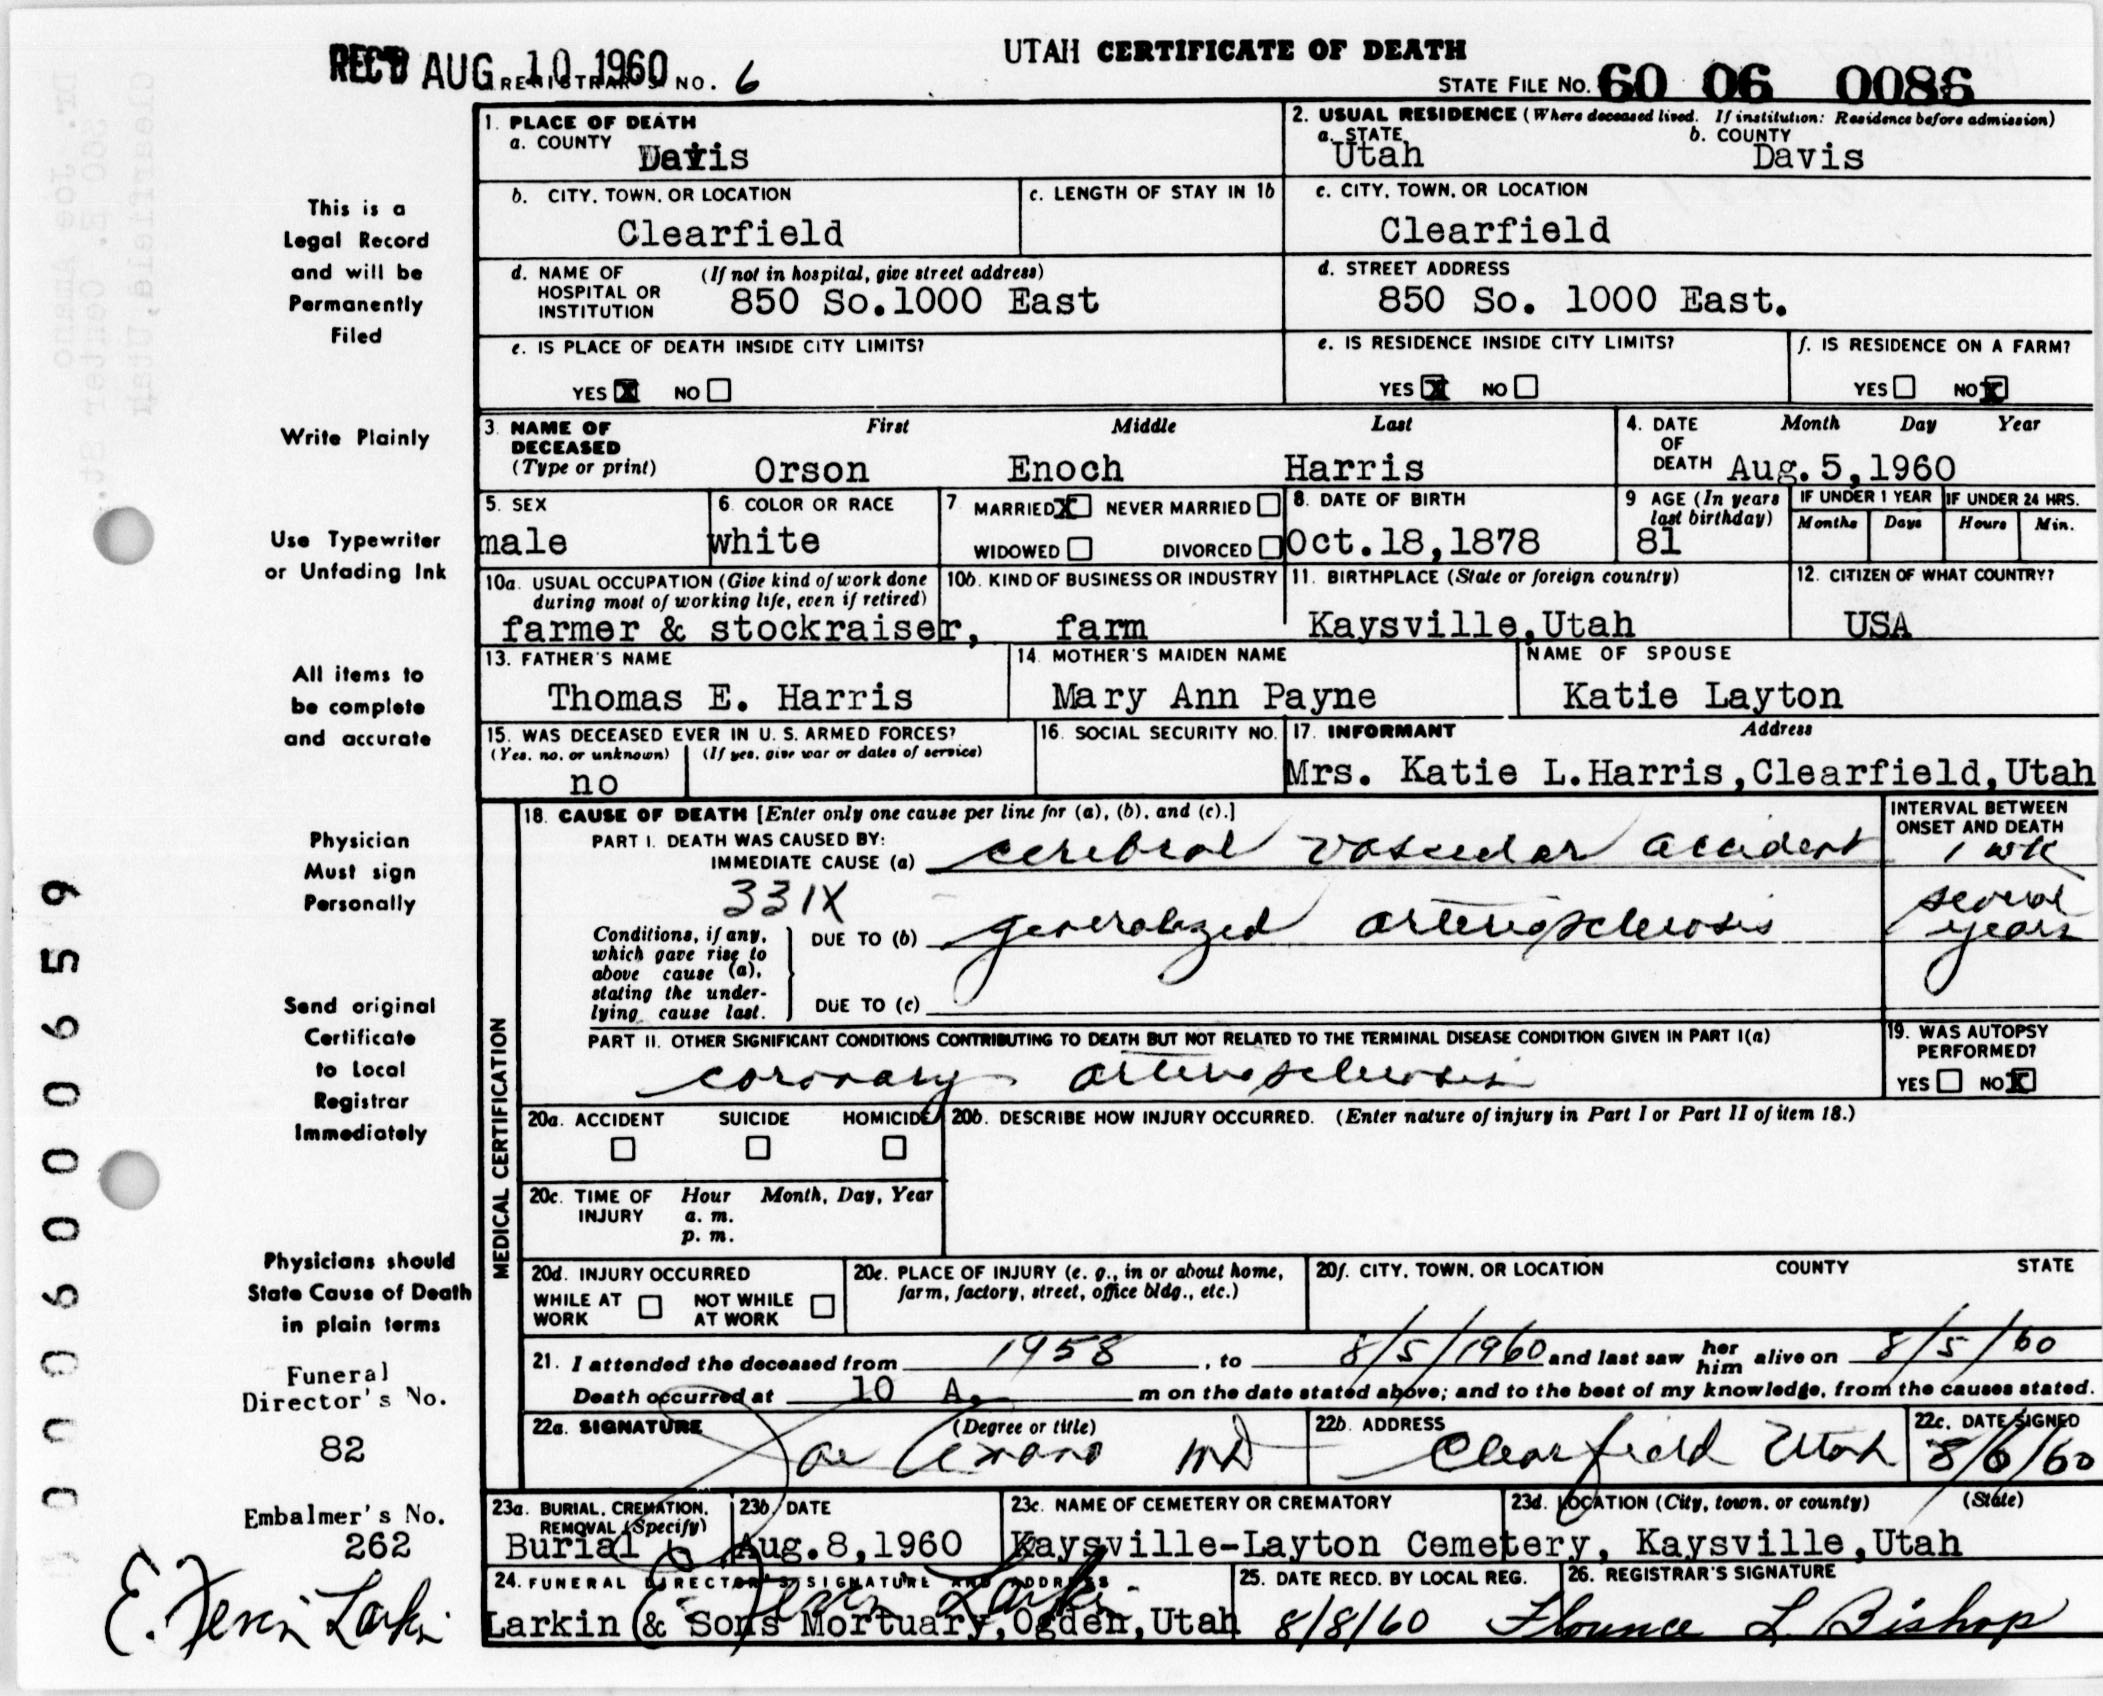 UTAH CERTIFICATE OF DEATH
REC'D AUG 10 1960 REGISTRAR'S NO. 6
STATE FILE NO. 60 06 0086
1. PLACE OF DEATH
a. COUNTY Davis
2. USUAL RESIDENCE (Where deceased lived. If institution: Residence before admission)
a. STATE Utah b. COUNTY Davis
b. CITY, TOWN, OR LOCATION Clearfield
c. LENGTH OF STAY IN 1b
c. CITY, TOWN, OR LOCATION Clearfield
d. NAME OF HOSPITAL OR INSTITUTION (If not in hospital, give street address) 850 So.1000 East
d. STREET ADDRESS 850 So. 1000 East.
e. IS PLACE OF DEATH INSIDE CITY LIMITS?
YES X NO
e. IS RESIDENCE INSIDE CITY LIMITS?
YES X NO
f. IS RESIDENCE ON A FARM?
YES NO X
3. NAME OF DECEASED (Type or print)
First Middle Last
Orson Enoch Harris
4. DATE OF DEATH Month Day Year
Aug.5,1960
5. SEX male
6. COLOR OR RACE white
7 MARRIED X NEVER MARRIED
WIDOWED DIVORCED
8. DATE OF BIRTH Oct.18,1878
9 AGE (In years last birthday) 81
IF UNDER 1 YEAR Months Days
IF UNDER 24 HRS. Hours Min.
10a. USUAL OCCUPATION (Give kind of work done during most of working life, even if retired)
farmer & stockraiser,
10b. KIND OF BUSINESS OR INDUSTRY farm
11. BIRTHPLACE (State or foreign country) Kaysville,Utah
12. CITIZEN OF WHAT COUNTRY? USA
13. FATHER'S NAME Thomas E. Harris
14. MOTHER'S MAIDEN NAME Mary Ann Payne
NAME OF SPOUSE Katie Layton
15. WAS DECEASED EVER IN U. S. ARMED FORCES?
(Yes, no, or unknown) (If yes, give war or dates of service)
no
16. SOCIAL SECURITY NO.
17. INFORMANT Address
Mrs. Katie L.Harris,Clearfield,Utah
MEDICAL CERTIFICATION
18. CAUSE OF DEATH [Enter only one cause per line for (a), (b), and (c).]
INTERVAL BETWEEN ONSET AND DEATH
PART I. DEATH WAS CAUSED BY:
IMMEDIATE CAUSE (a) cerebral vascular accident 1 wk
331X
Conditions, if any, which gave rise to above cause (a), stating the underlying cause last.
DUE TO (b) generalized arteriosclerosis several years
DUE TO (c)
PART II. OTHER SIGNIFICANT CONDITIONS CONTRIBUTING TO DEATH BUT NOT RELATED TO THE TERMINAL DISEASE CONDITION GIVEN IN PART I(a)
coronary arteriosclerosis
19. WAS AUTOPSY PERFORMED?
YES NO X
20a. ACCIDENT SUICIDE HOMICIDE
20b. DESCRIBE HOW INJURY OCCURRED. (Enter nature of injury in Part I or Part II of item 18.)
20c. TIME OF INJURY Hour Month, Day, Year
a. m.
p. m.
20d. INJURY OCCURRED
WHILE AT WORK NOT WHILE AT WORK
20e. PLACE OF INJURY (e. g., in or about home, farm, factory, street, office bldg., etc.)
20f. CITY, TOWN, OR LOCATION COUNTY STATE
21. I attended the deceased from 1958, to 8/5/1960 and last saw her him alive on 8/5/60
Death occurred at 10 A. m on the date stated above; and to the best of my knowledge, from the causes stated.
22a. SIGNATURE (Degree or title)
Joe Amano MD
22b. ADDRESS Clearfield Utah
22c. DATE SIGNED 8/6/60
23a. BURIAL, CREMATION, REMOVAL (Specify) Burial
23b. DATE Aug.8,1960
23c. NAME OF CEMETERY OR CREMATORY
23d. LOCATION (City, town, or county) (State)
Kaysville-Layton Cemetery, Kaysville,Utah
24. FUNERAL DIRECTOR'S SIGNATURE AND ADDRESS
Larkin & Sons Mortuary,Ogden,Utah
25. DATE RECD. BY LOCAL REG. 8/8/60
26. REGISTRAR'S SIGNATURE
Florence L. Bishop
This is a
Legal Record
and will be
Permanently
Filed
Write Plainly
Use Typewriter
or Unfading Ink
All items to
be complete
and accurate
Physician
Must sign
Personally
Send original
Certificate
to Local
Registrar
Immediately
Physicians should
State Cause of Death
in plain terms
Funeral
Director's No.
82
Embalmer's No.
262
E. Fervin Larkin
00060006 59